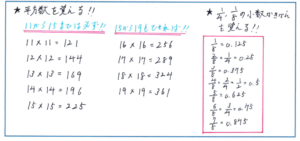 ★平方数を覚える!!
11から15までは必ず!!
11 × 11 = 121
12 × 12 = 144
13 × 13 = 169
14 × 14 = 196
15 × 15 = 225
16 × 16 = 256
17 × 17 = 289
18 × 18 = 324
19 × 19 = 361
を覚える!!
1/8 = 0.125
2/8 = 1/4 = 0.25
3/8 = 0.375
4/8 = 2/4 = 1/2 = 0.5
5/8 = 0.625
6/8 = 3/4 = 0.75
7/8 = 0.875